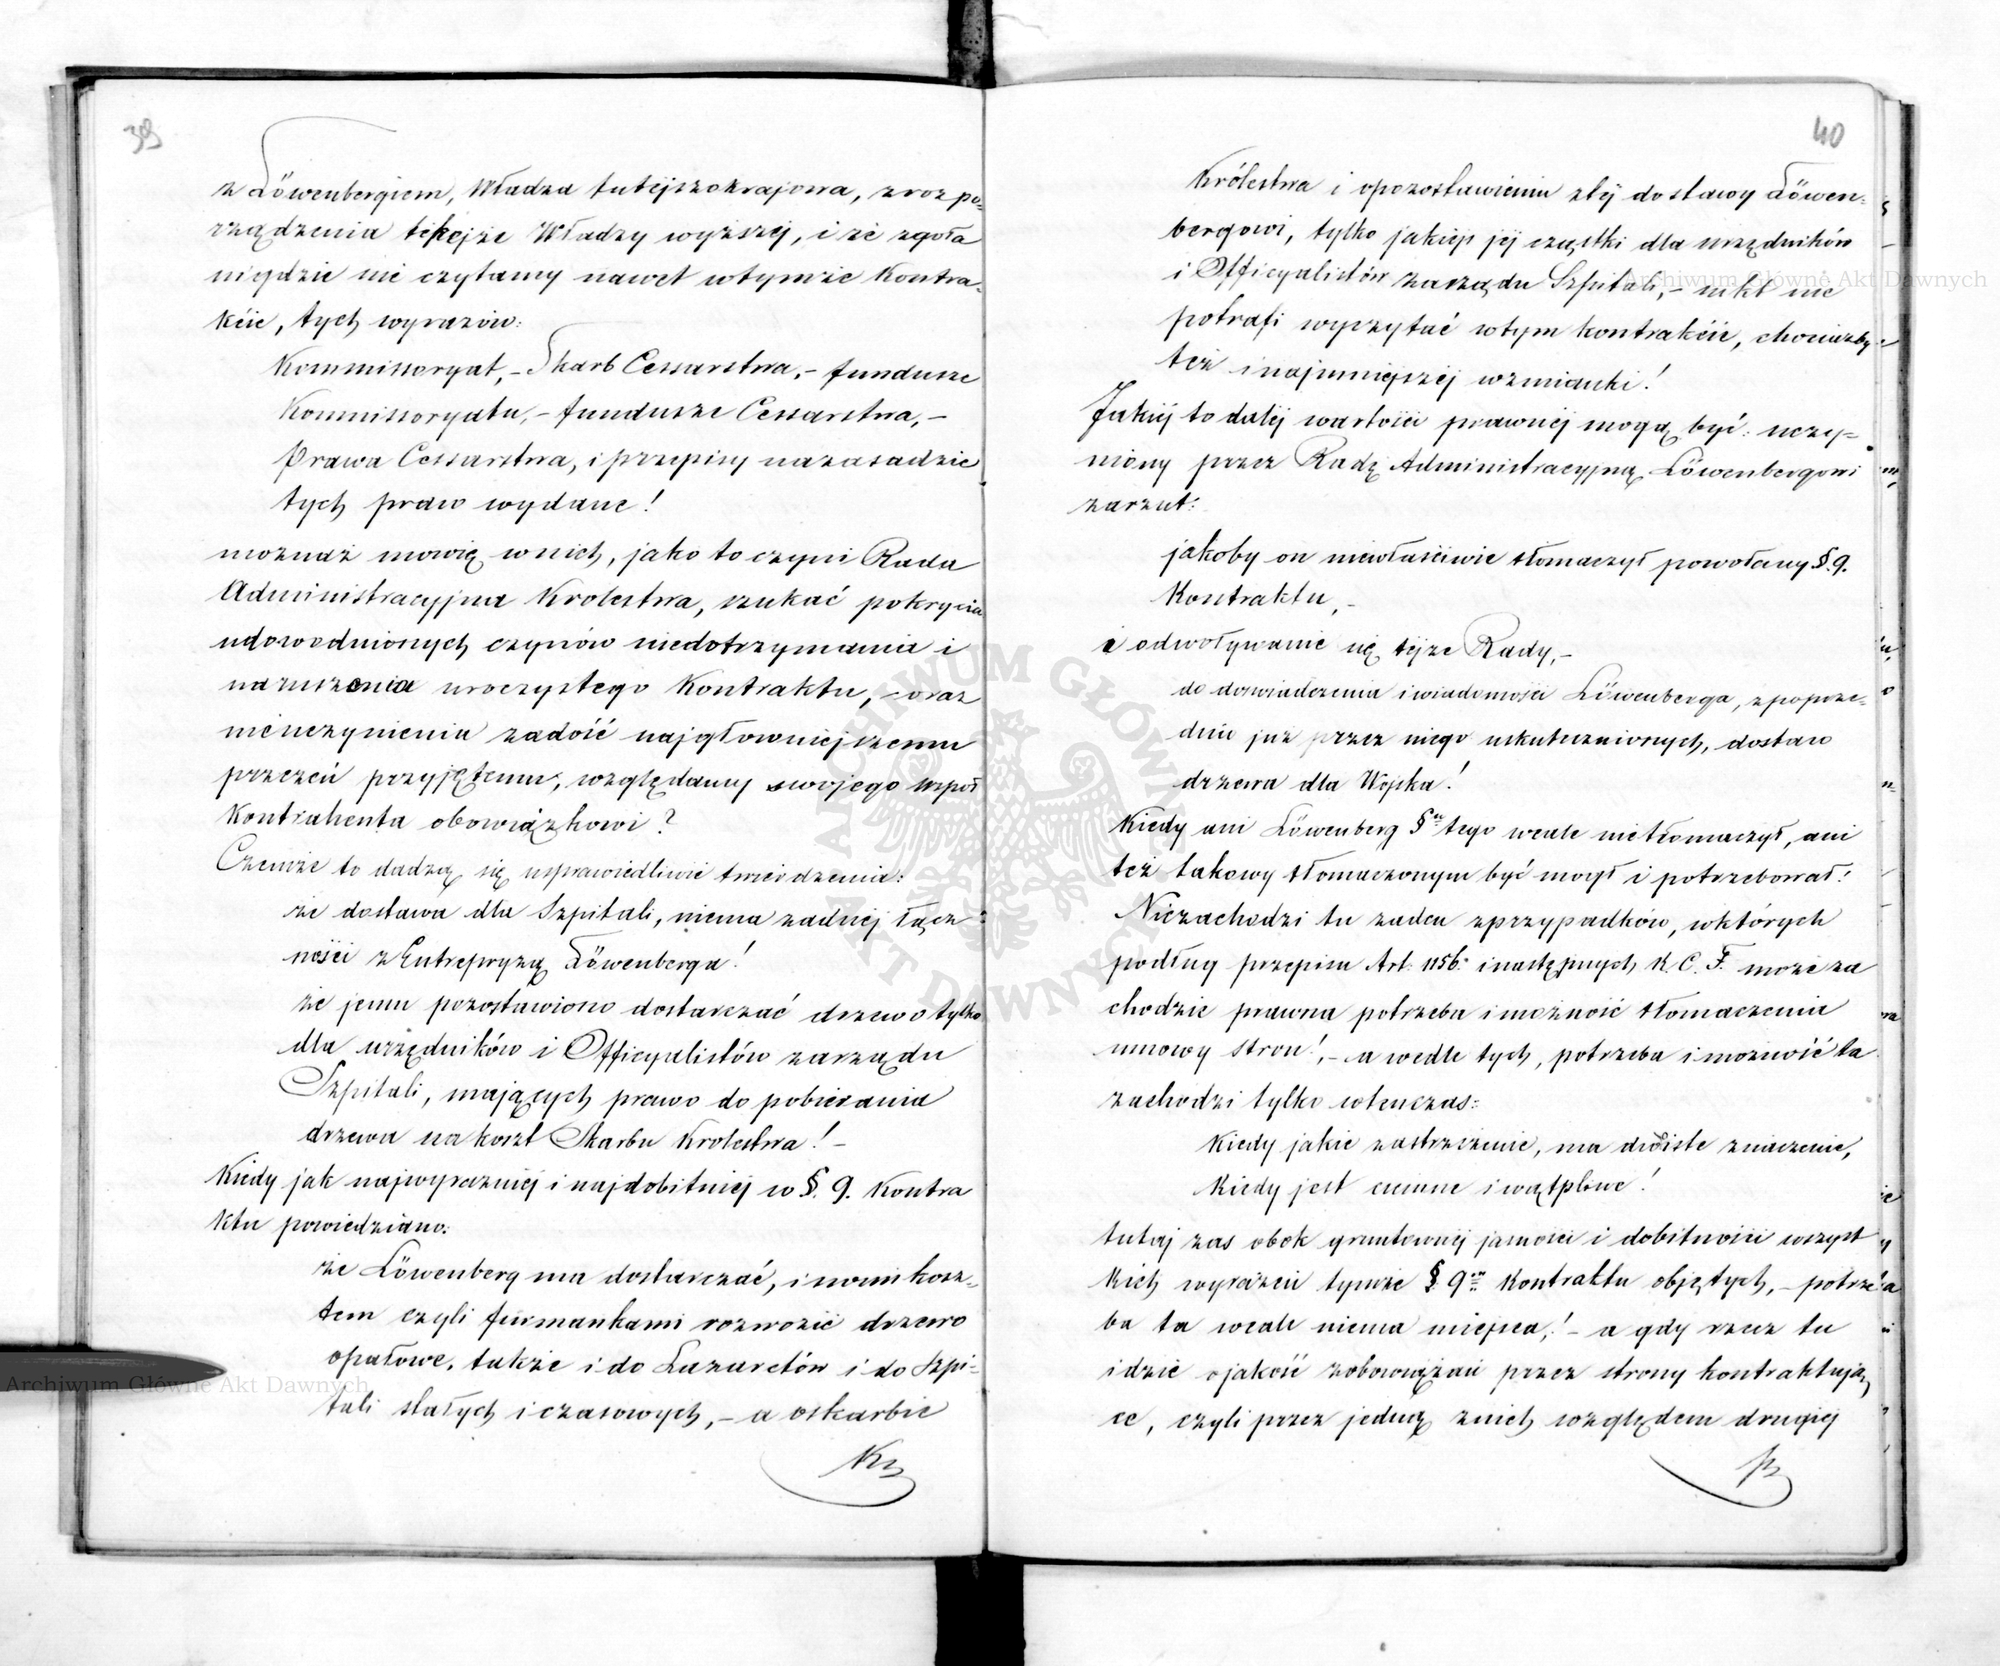 39
z Löwenbergiem, Władza tutejszokrajowa, z rozpo-
rządzenia tejże Władzy wyższej, i że zgoła
nigdzie nie czytamy nawet w tymże Kontra-
kcie, tych wyrazów:
Kommissoryat, – Skarb Cessarstwa, – fundusze
Kommissoryatu, – fundusze Cessarstwa, –
Prawa Cessarstwa, i przepisy na zasadzie
tych praw wydane!
możnaż mowię w nich, jako to czyni Rada
Administracyjna Krolestwa, szukać pokrycia
udowodnionych czynów niedotrzymania i
naruszenia uroczystego Kontraktu, – oraz
nieuczynienia zadość najgłowniejszemu
przezeń przyjętemu, względamy swojego wspoł
Kontrahenta obowiązkowi?
Czemże to dadzą się usprawiedliwić twierdzenia:
że dostawa dla Szpitali, niema żadnej łącz-
ności z Entrepryzą Löwenberga!
że jemu pozostawiono dostarczać drzewo tylko
dla urzędników i Officyalistów zarządu
Szpitali, mających prawo do pobierania
drzewa na koszt Skarbu Krolestwa! –
Kiedy jak najwyrazniej i najdobitniej w §. 9. Kontra
ktu powiedziano:
że Löwenberg ma dostarczać, i swoim kosz-
tem czyli furmankami rozwozić drzewo
opałowe, także i do Lazaretów i do Szpi-
tali stałych i czasowych, – a o skarbie
40
Królestwa i o pozostawieniu z tej dostawy Löwen-
bergowi, tylko jakiejś jej cząstki dla urzędników
i Officyalistów zarządu Szpitali, – nikt nie
potrafi wyczytać w tym kontrakcie, chociażby
też i najmniejszej wzmianki!
Jakiej to dalej wartości prawnej mogą być: uczy-
niony przez Radę Administracyjną Löwenbergowi
zarzut:
jakoby on niewłaściwie tłomaczył powołany §. 9.
Kontraktu, –
i odwoływanie się tejże Rady, –
do doswiadczenia i wiadomości Löwenberga, z poprze-
dnio już przez niego uskutecznionych, dostaw
drzewa dla Wojska!
Kiedy ani Löwenberg §u tego wcale nie tłomaczył, ani
też takowy tłomaczonym być mogł i potrzebował!
Niezachodzi tu żaden z przypadków, w których
podług przepisu Art: 1156. i następnych K. C. F. może za
chodzić prawna potrzeba i możność tłomaczenia
umowy stron!, – a wedle tych, potrzeba i możność ta
zachodzi tylko wtenczas:
Kiedy jakie zastrzeżenie, ma dwoiste znaczenie,
Kiedy jest ciemne i wątpliwe!
tutaj zas obok gruntownej jasności i dobitności wszyst
kich wyrażeń tymże § 9m Kontraktu objętych, – potrze
ba ta wcale niema miejsca,! – a gdy rzecz tu
idzie o jakość zobowiązań przez strony kontraktują
ce, czyli przez jedną z nich względem drugiej
Archiwum Główne Akt Dawnych
Archiwum Główne Akt Dawnych
ARCHIWUM GŁÓWNE AKT DAWNYCH